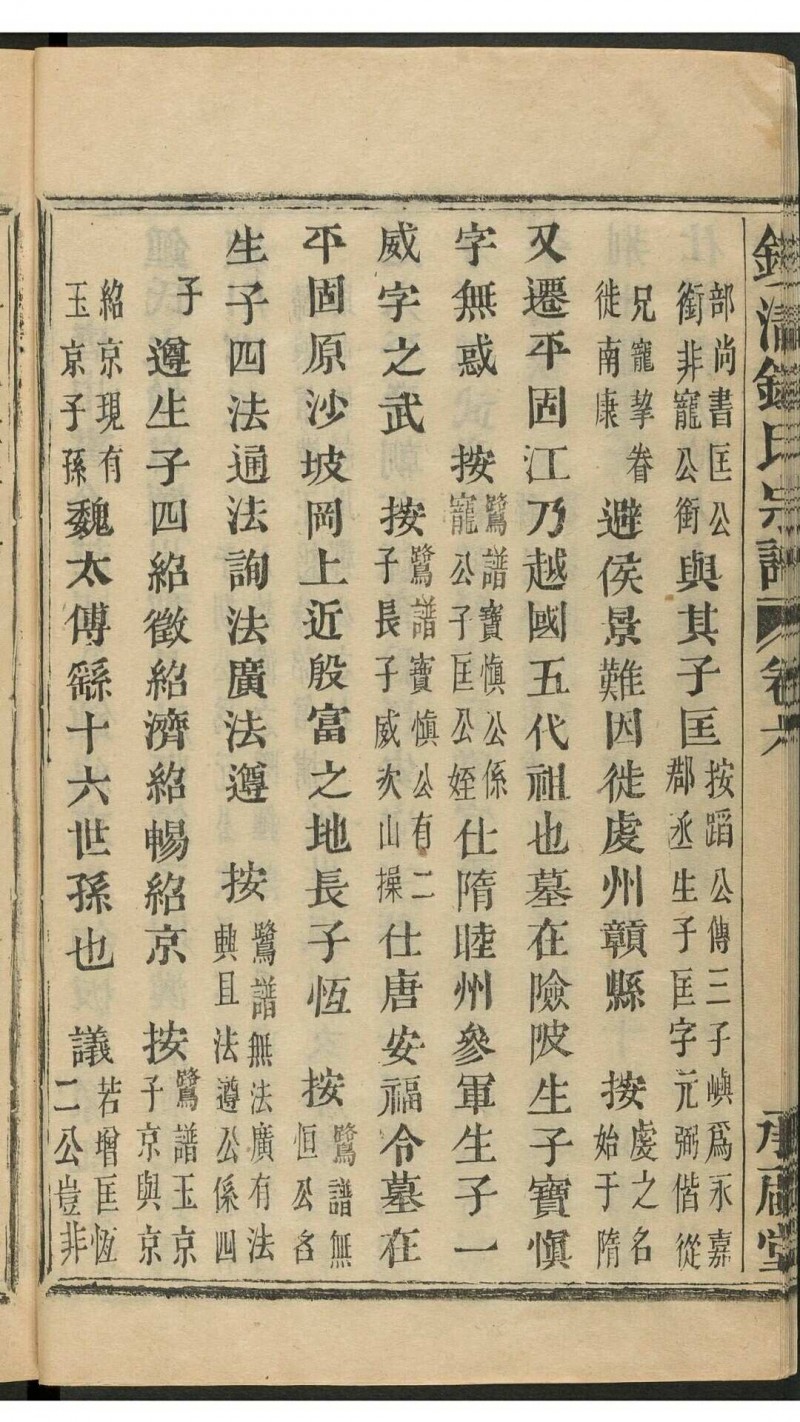 鍾氏宗譜 卷六 承堂
部尚書匡公銜非寵公銜與其子匡按蹈公傳三子嶼爲永嘉郡丞生子匡字元弼偕從
兄寵挈眷徙南康避侯景難因徙虔州贑縣 按虔之名始于隋
又遷平固江乃越國五代祖也墓在險陂生子寶慎
字無惑 按鷺譜寶慎公係寵公子匡公姪仕隋睦州參軍生子一
威字之武 按鷺譜寶慎公有二子長子威次山操仕唐安福令墓在
平固原沙坡岡上近殷富之地長子恆 按鷺譜無恒公名
生子四法通法詢法廣法遵 按鷺譜無法廣有法興且法遵公係四
子 遵生子四紹徵紹濟紹暢紹京 按鷺譜玉京子京與京
紹京現有玉京子孫魏太傅繇十六世孫也 議若增匡恆二公豈非